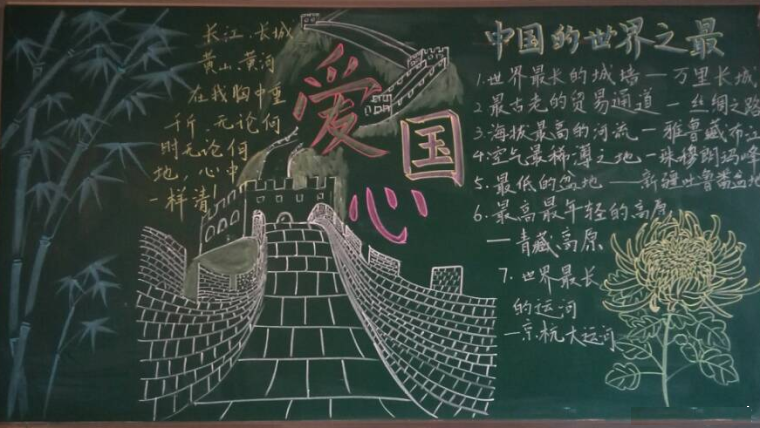 长江、长城
黄山、黄河
在我胸中重
千斤.无论何
时无论何
地,心中
一样清!
爱
国
心
中国的世界之最
1.世界最长的城墙—万里长城
2.最古老的贸易通道—丝绸之路
3.海拔最高的河流—雅鲁藏布江
4.空气最稀薄之地—珠穆朗玛峰
5.最低的盆地——新疆吐鲁番盆地
6.最高最年轻的高原
—青藏高原
7.世界最长
的运河
—京杭大运河